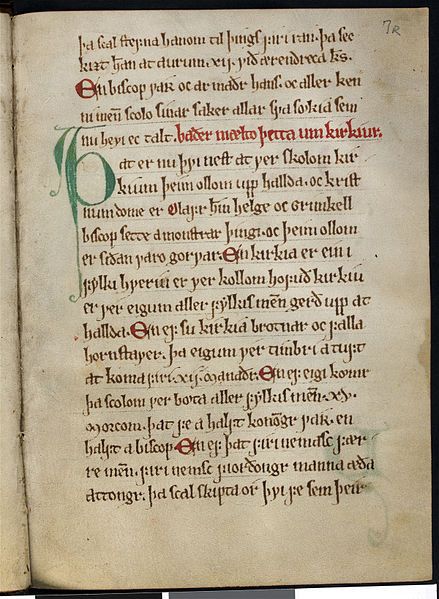 7r
þa scal stefna hanom til þings firi ran. þa sec
kizt han at aurum .xij. við ærendreca kſ.
En biscop var oc ar maðr hans. oc aller ken
ni menn scolo sinar saker allar sva sokia sem
nu hevi ec talt. baðer mælto þetta um kirkiur.
Þat er nu þvi nest at ver skolom kir
kium þeim ollom upp hallda. oc krist
num dome er Olafr hinn helge oc Grimkell
biscop sette a monstrar þingi. oc þeim ollom
er siðan varo gorvar. En kirkia er ein i
fylki hveriu er ver kollom hofuð kirkiu
er ver eigum aller fylkis menn gerð upp at
hallda. En ef su kirkia brotnar oc falla
hornstaver. þa eigum ver timbri a tuft
at koma firi .xij. manaðr. En ef eigi kømr
þa scolom ver bøta aller fylkis menn .xv.
morcom. þat fe a halft konongr var. en
halft a biscop. En ef þat firi nemasc fær
re menn. firi nemsc fiorðongr manna æða
attongr. þa scal skipta or þvi fe sem þeir